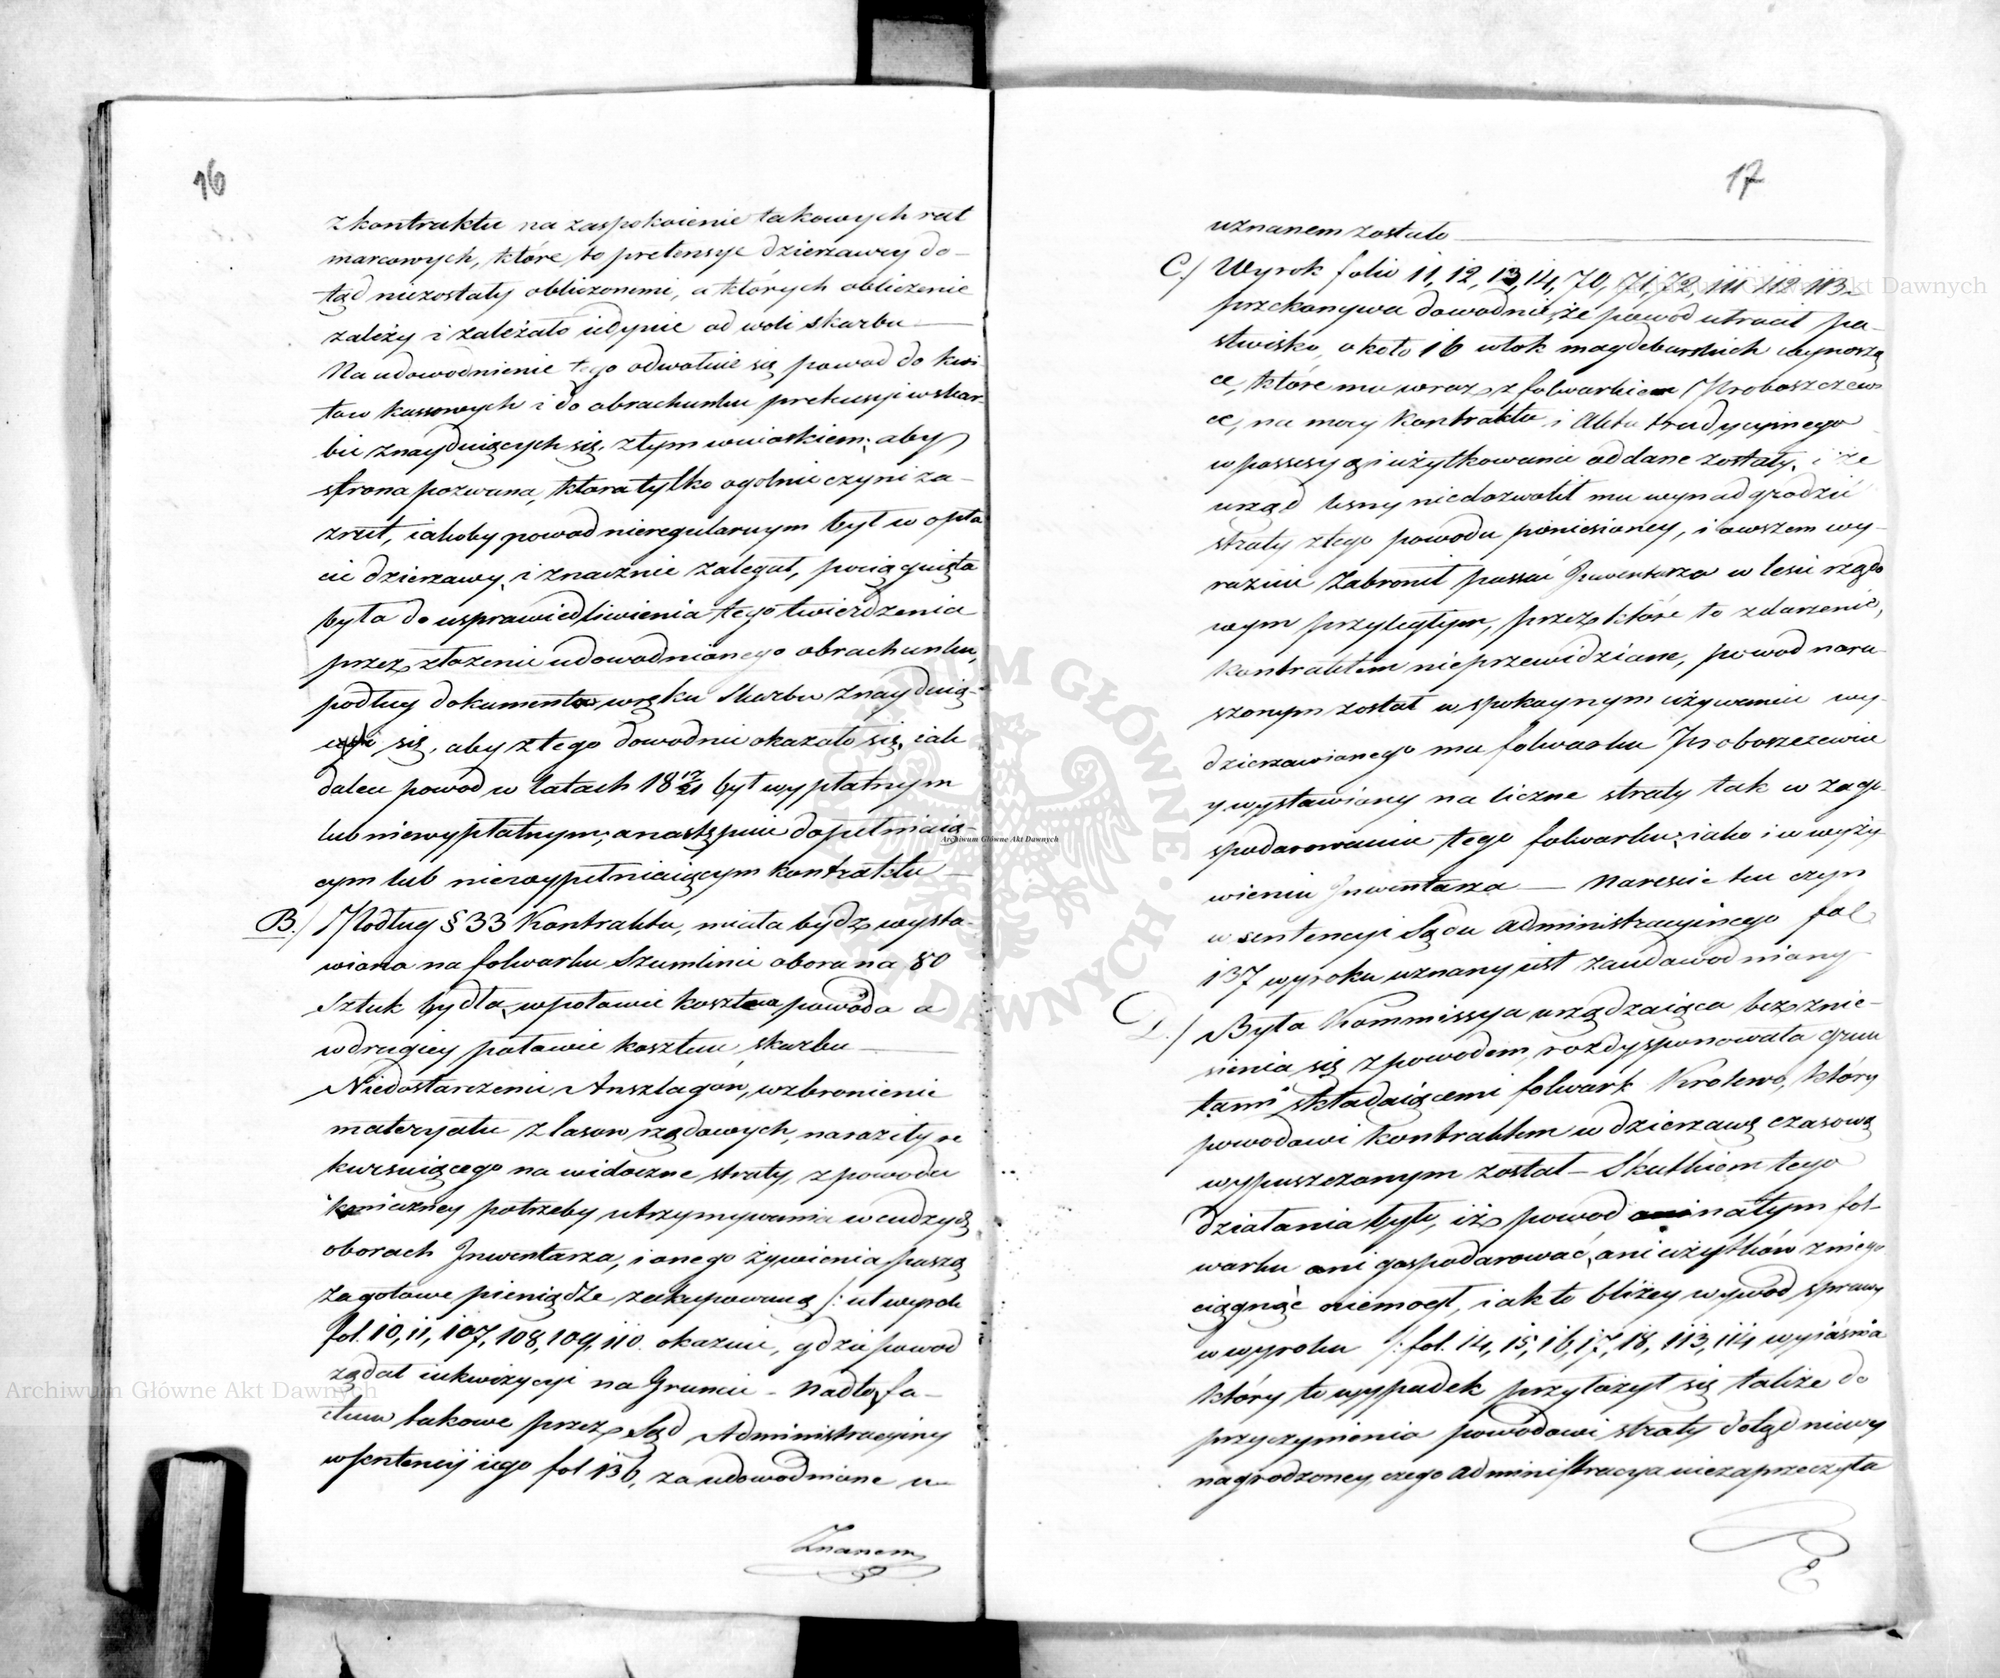 16
z kontraktu na zaspokoienie takowych rat
marcowych, które to pretensye dzierzawcy do-
tąd niezostały obliczonemi, a których obliczenie
zależy i zależało iedynie od woli skarbu —
Na udowodnienie tego odwołuie się powod do kwi-
tow kassowych i do obrachunku prekusyi w skar-
bie znayduiących się, z tym wnioskiem, aby
strona pozwana, ktora tylko ogolnie czyni za-
rzut, iakoby powod nieregularnym był w opła
cie dzierzawy, i znacznie zalegał, pociągnięta
była do usprawiedliwienia tego twierdzenia
przez złożenie udowodnionego obrachunku,
podług dokumentow w ręku Skarbu znayduią-
cych się, aby z tego dowodnie okazało się, iak
dalece powod w latach 18 17/21 był wypłatnym
lub niewypłatnym, a następnie dopełniaią-
cym lub niewypełniaiącym kontraktu —
B./ Podług § 33 Kontraktu, miała bydź wysta-
wiona na folwarku Szumlinie obora na 80
Sztuk bydła, w połowie kosztem powoda a
w drugiey połowie kosztem skarbu —
Niedostarczenie Anszlagów, wzbronienie
materyału z lasow rządowych, naraziły re
kursuiącego na widoczne straty, z powodu
konieczney potrzeby utrzymywania w cudzych
oborach Inwentarza, i onego żywienia paszą
za gotowe pieniądze zakupowaną /: ut wyrok
fol. 10, 11, 107, 108, 109, 110. okazuie, gdzie powod
żądał inkwizycyi na Gruncie — Nadto, fa-
ctum takowe przez Sąd Administracyiny
w sentencyi iego fol 136, za udowodnione u-
Znanem
17
uznanem zostało —
C./ Wyrok folio 11, 12, 13, 14, 70, 71, 72, 111 112 113.
przekonywa dowodnie, że powod utracił pa-
stwisko, około 16 włok magdeburskich wynoszą
ce, które mu wraz z folwarkiem Proboszczew
ce, na mocy Kontraktu i Aktu tradycyinego
w possesyą i użytkowanie oddane zostały, i że
urząd leśny niedozwolił mu wynadgrodzić
straty z tego powodu poniesioney, i owszem wy-
raźnie zabronił passać Inwentarza w lesie rządo
wym przyległym, przez które to zdarzenie,
kontraktem nieprzewidziane, powod naru-
szonym został w spokaynym używaniu wy-
dzierzawionego mu folwarku Proboszczewice
y wystawiony na liczne straty tak w zago-
spodarowaniu tego folwarku, iako i w wyży-
wieniu Inwentarza — Nareście ten czyn
w sentencyi Sądu Administracyinego fol
137 wyroku uznany iest za udowodniony
D./ Była Kommissya urządzaiąca bez znie-
sienia się z powodem, rozdysponowała grun
tami składaiącemi folwark Krolewo, który
powodowi Kontraktem w dzierzawę czasową
wypuszczonym został — Skutkiem tego
działania było, iż powod na tym fol-
warku ani gospodarować, ani użytków z niego
ciągnąć niemogł, iak to bliżey wywod sprawy
w wyroku /: fol. 14, 15, 16, 17, 18, 113, 114 wyiaśnia
który to wypadek przyłożył się także do
przyczynienia powodowi straty dotąd niewy
nagrodzoney, czego Administracya niezaprzeczyła
E
Archiwum Główne Akt Dawnych
Archiwum Główne Akt Dawnych
Archiwum Główne Akt Dawnych
ARCHIWUM GŁÓWNE AKT DAWNYCH